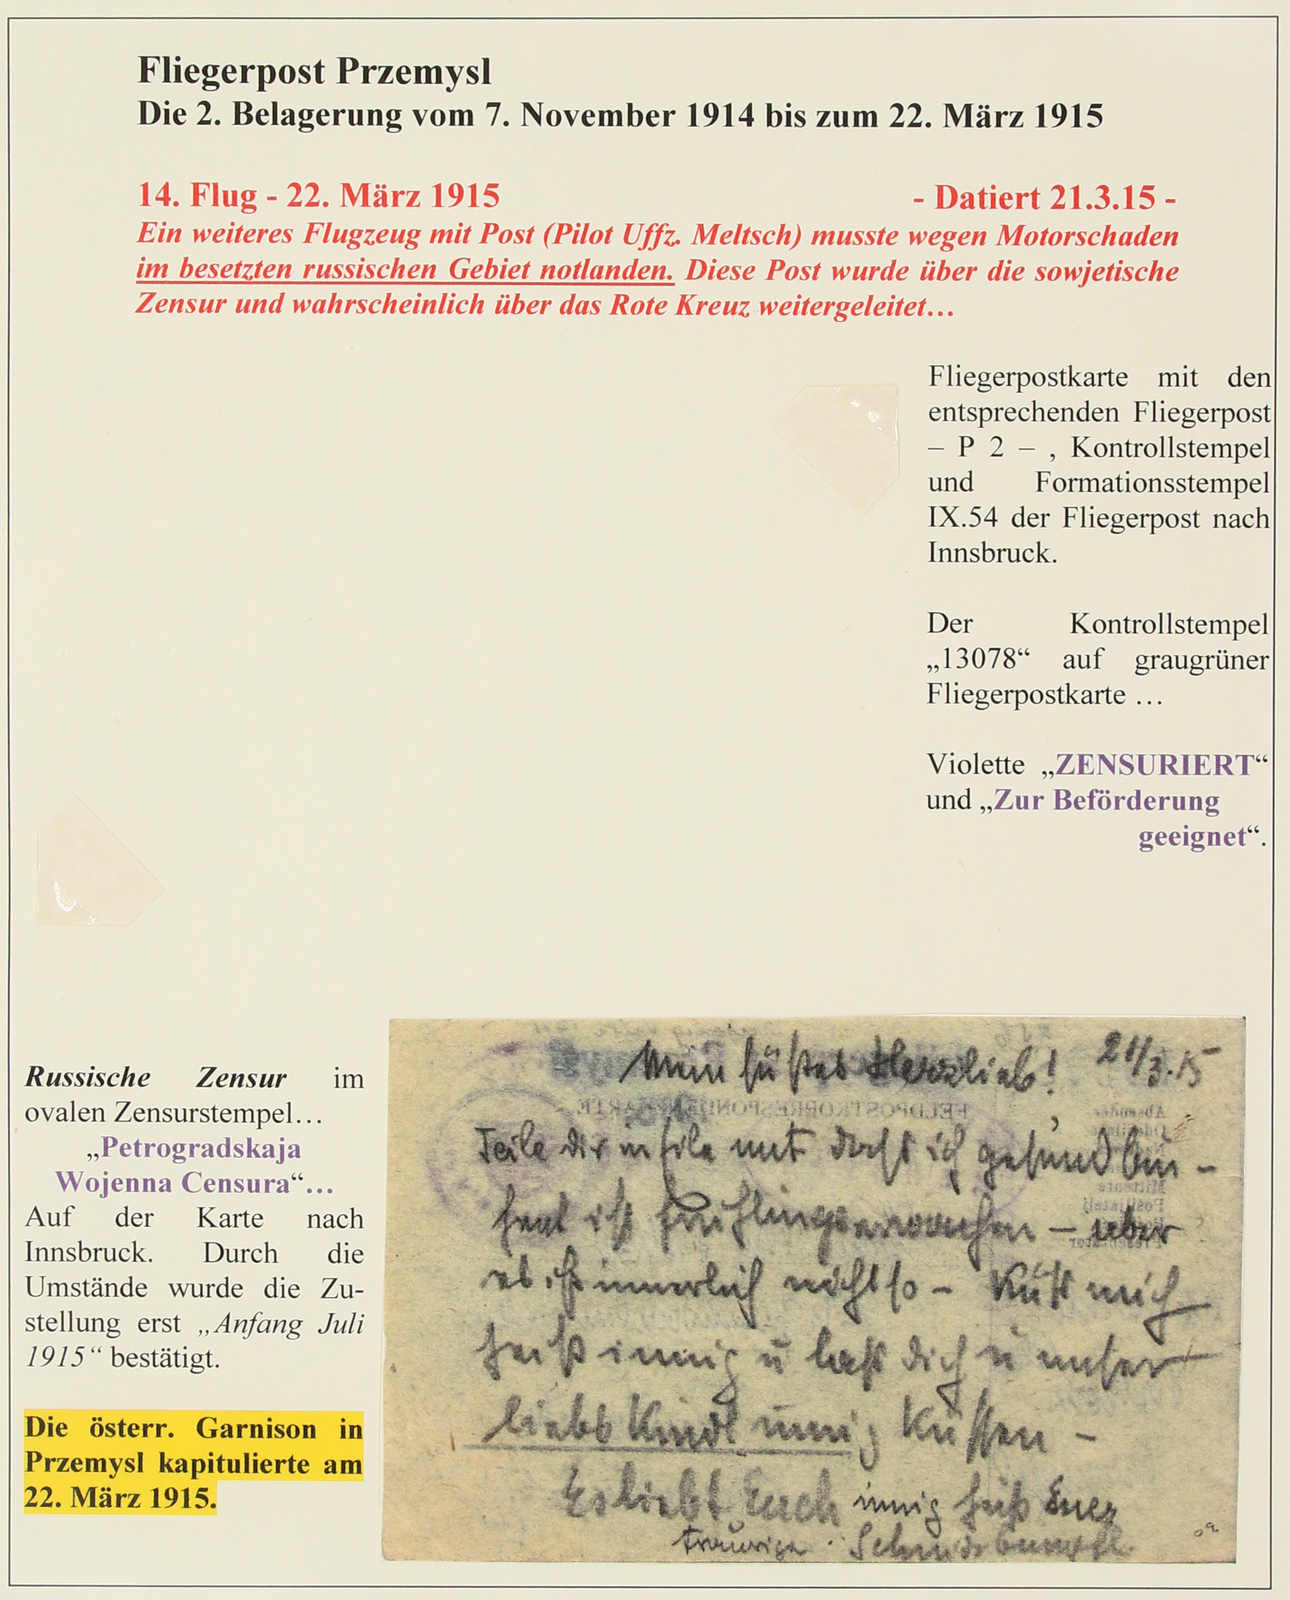 Fliegerpost Przemysl
Die 2. Belagerung vom 7. November 1914 bis zum 22. März 1915
14. Flug - 22. März 1915
- Datiert 21.3.15 -
Ein weiteres Flugzeug mit Post (Pilot Uffz. Meltsch) musste wegen Motorschaden
im besetzten russischen Gebiet notlanden. Diese Post wurde über die sowjetische
Zensur und wahrscheinlich über das Rote Kreuz weitergeleitet…
Fliegerpostkarte mit den
entsprechenden Fliegerpost
– P 2 – , Kontrollstempel
und Formationsstempel
IX.54 der Fliegerpost nach
Innsbruck.
Der Kontrollstempel
„13078“ auf graugrüner
Fliegerpostkarte …
Violette „ZENSURIERT“
und „Zur Beförderung
geeignet“.
Russische Zensur im
ovalen Zensurstempel…
„Petrogradskaja
Wojenna Censura“…
Auf der Karte nach
Innsbruck. Durch die
Umstände wurde die Zu-
stellung erst „Anfang Juli
1915“ bestätigt.
Die österr. Garnison in
Przemysl kapitulierte am
22. März 1915.
Mein süßes Herzlieb! 21/3.15
Teile dir in Eile mit daß ich gesund bin -
heut ist Frühlingserwachen - aber
es ist innerlich nicht so - Küß mich
heiß innig u laß dich u unser
liebs Kindl innig küssen -
Es liebt Euch innig heiß Euer
trauriger
FELDPOSTKORRESPONDENZKARTE
Absender